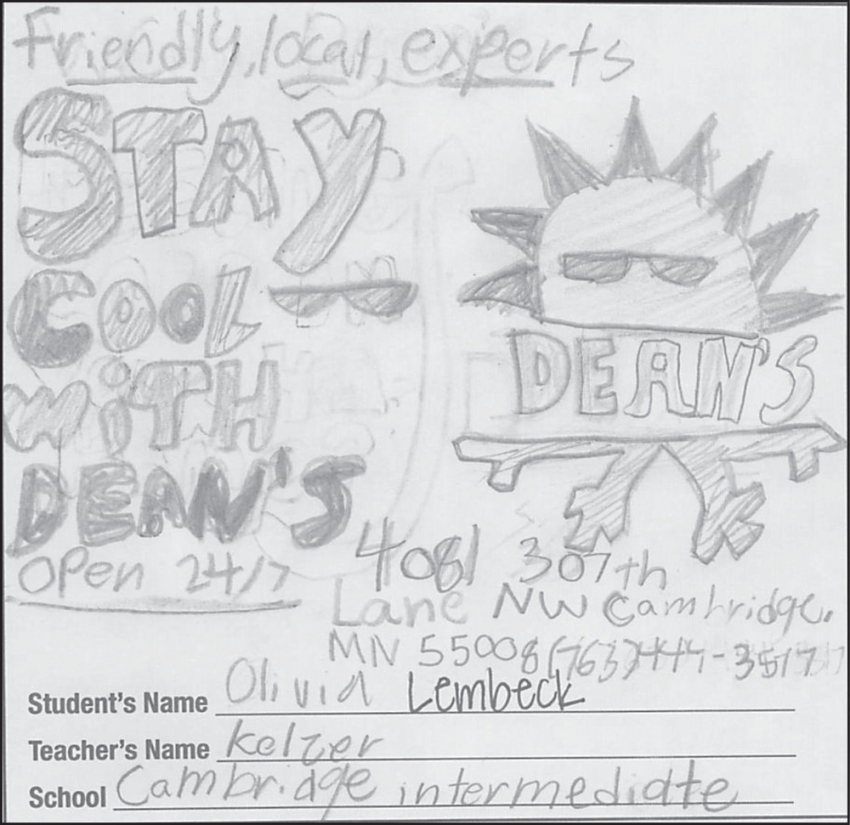 Friendly, local, experts
STAY
COOL
WiTH
DEAN'S
OPen 24/7
DEAN'S
4081 307th
Lane NW Cambridge,
MN 55008 (763)444-3517
Student's Name Olivia Lembeck
Teacher's Name Kelzer
School Cambridge intermediate